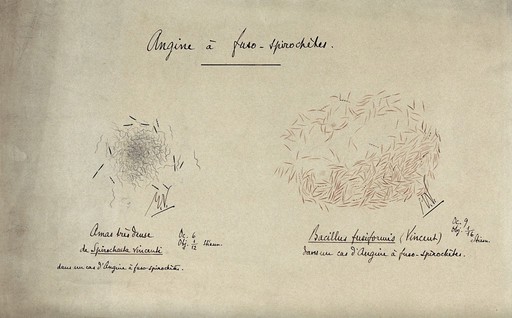 Angine à fuso-spirochètes.
Amas très dense
de Spirochaeta Vincenti
dans un cas d'Angine à fuso-spirochètes.
Oc. 6
Obj. 1/12 Stiassn.
Bacillus fusiformis (Vincent)
dans un cas d'Angine à fuso-spirochètes.
Oc. 9
Obj. 1/16